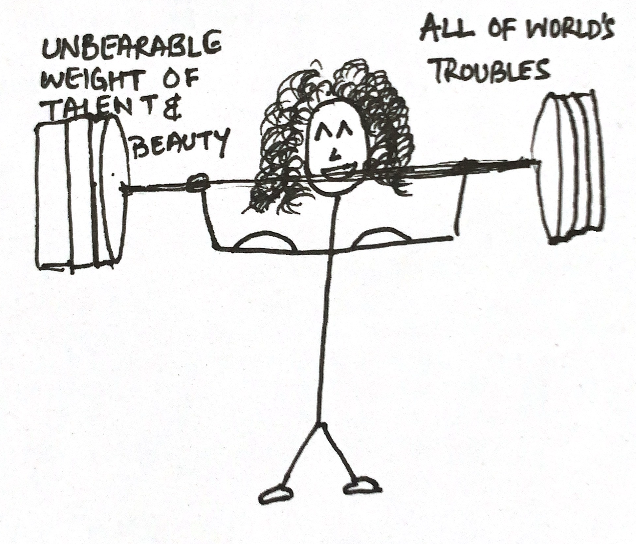 UNBEARABLE
WEIGHT OF
TALENT &
BEAUTY
ALL OF WORLD'S
TROUBLES